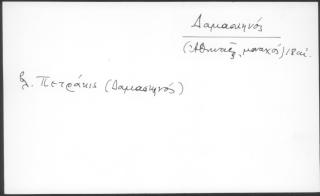 Δαμασκηνός
(Ἀθηναῖος, μοναχός) 18 αἰ.
βλ. Πετράκις (Δαμασκηνός)